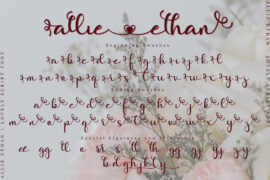 rallie ethan
Beginning Swashes
a b c d e f g h i j k l
m n o p q r s t u v w x y z
Ending Swashes
a b c d e f g h i j k l
m n o p q r s t u v w x y z
Special Ligatures and
ee gg ll oo ss tt th gg jj yy zz
b d g h j k l y
ALLIE ETHAN | LOVELY SCRIPT FONT